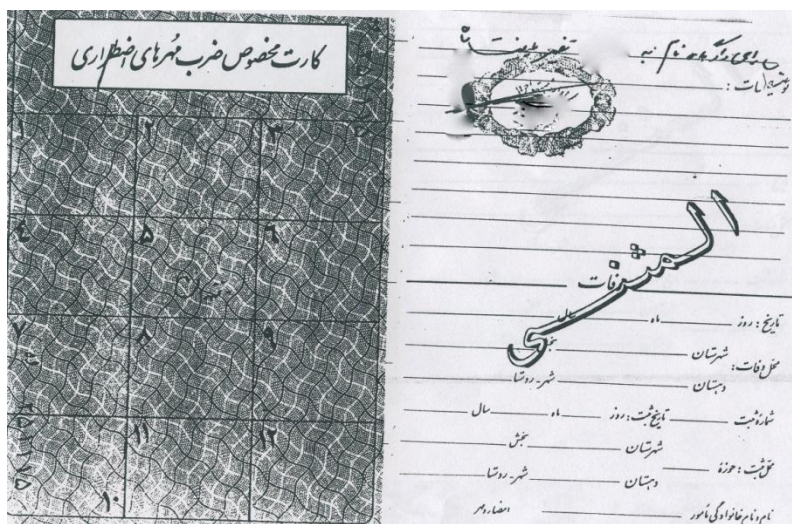 کارت مخصوص ضرب مهرهای اضطراری
۱ ۲ ۳
۴ ۵ ۶
۷ ۸ ۹
۱۰ ۱۱ ۱۲
توضیحات :
المثنی
وفات
تاریخ : روز ماه سال
محل وفات : شهرستان بخش
دهستان شهر - روستا
شماره ثبت تاریخ ثبت : روز ماه سال
محل ثبت : حوزه شهرستان بخش
دهستان شهر - روستا
نام و نام خانوادگی مأمور امضاء و مهر